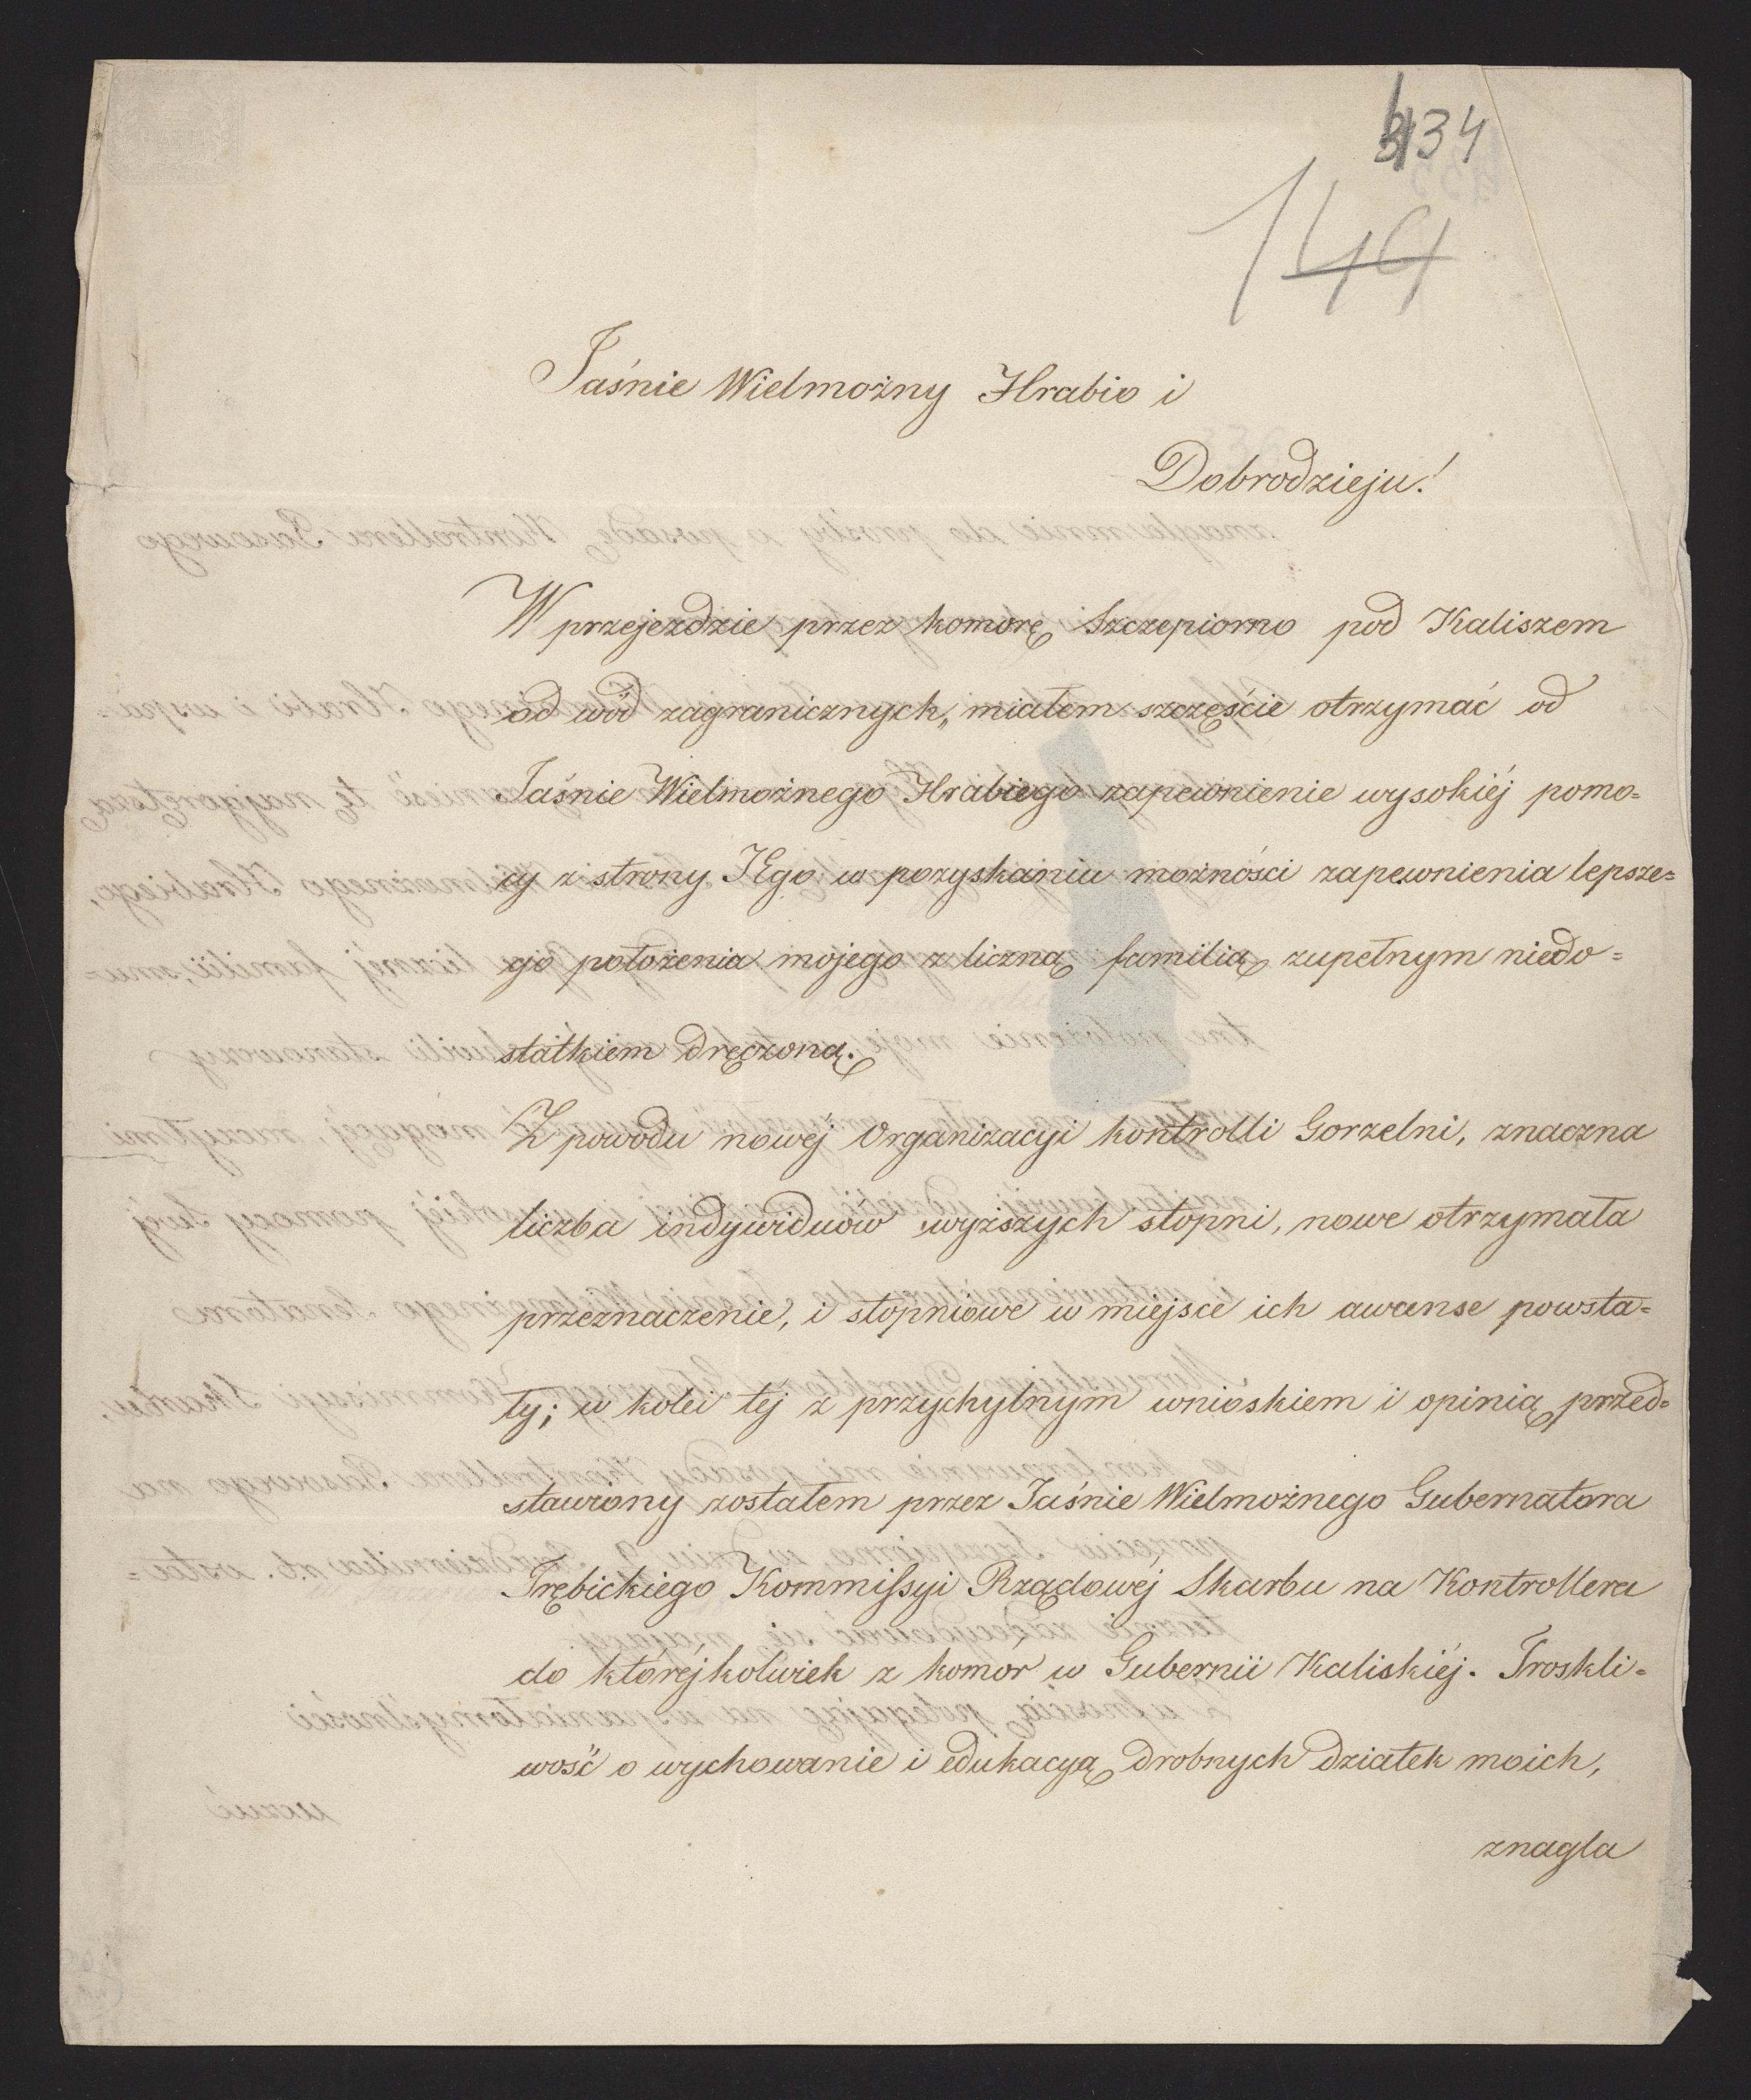 334
144
Jaśnie Wielmożny Hrabio i
Dobrodzieju!
W przejezdzie przez komorę Szczepiorno pod Kaliszem
od wód zagranicznych, miałem szczęście otrzymać od
Jaśnie Wielmożnego Hrabiego zapewnienie wysokiéj pomo=
cy z strony JEgo w pozyskaniu możności zapewnienia lepsze=
go położenia mojego z liczną familią zupełnym niedo=
statkiem dręczoną.
Z powodu nowéj Organizacyi kontrolli Gorzelni, znaczna
liczba indywiduów wyższych stopni, nowe otrzymała
przeznaczenie, i stopniowe w miejsce ich awanse powsta=
ły; w kolei téj z przychylnym wnioskiem i opinią przed=
stawiony zostałem przez Jaśnie Wielmożnego Gubernatora
Trębickiego Kommissyi Rządowéj Skarbu na Kontrollera
do któréjkolwiek z komór w Gubernii Kaliskiéj. Troskli=
wość o wychowanie i edukacyą drobnych dziatek moich,
znagla